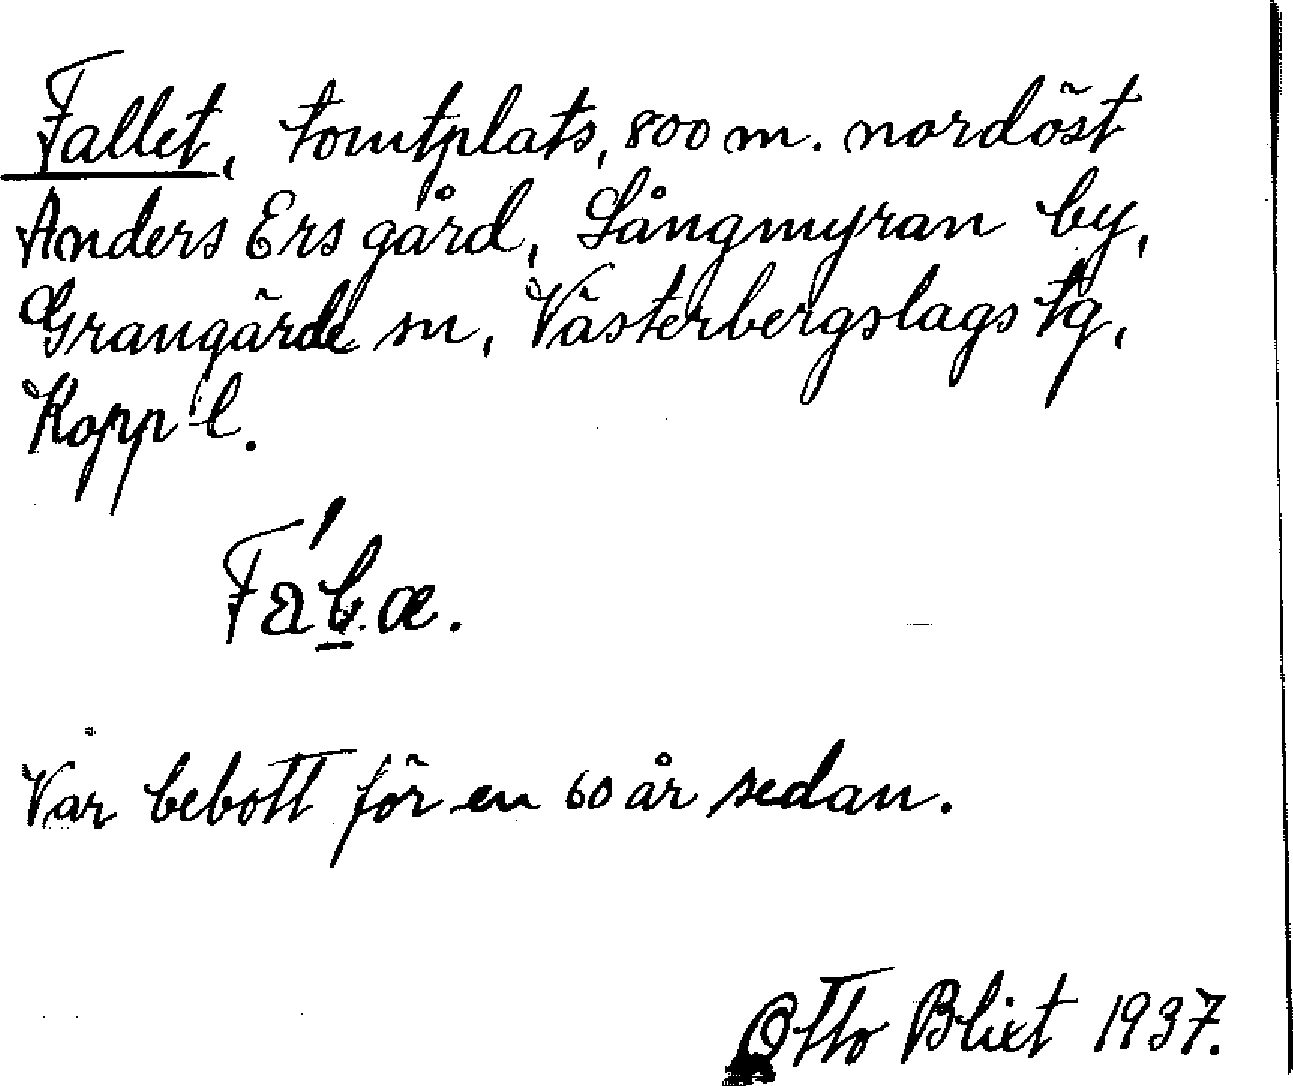 Fallet, tomtplats, 800 m. nordöst
Anders Ers gård, Långmyran by,
Grangärde sn, Västerbergslags tg,
Kopp l.
Var bebott för en 60 år sedan.
Otto Blixt 1937.